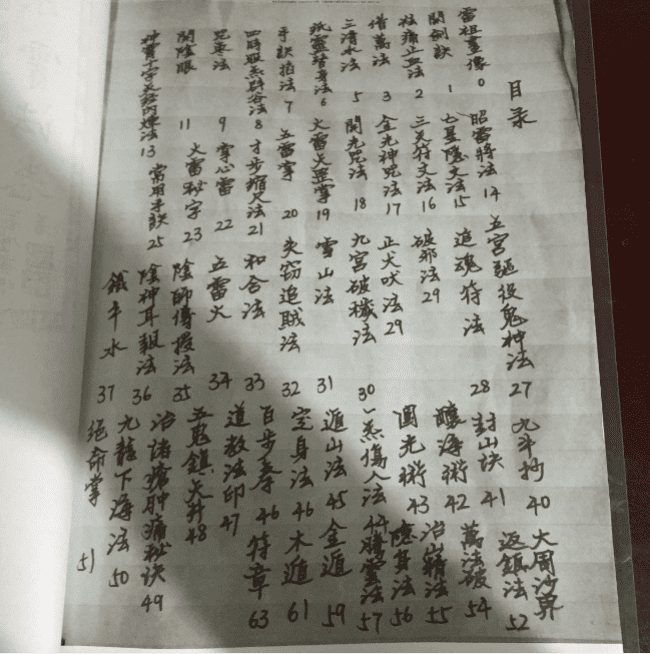 目录
雷祖畫像 0
開劍訣 1
祛痛止血法 2
借萬法 3
三清水法 5
紙靈替身法 6
手訣指法 7
四時服炁辟谷法 8
咒棗法 9
開陰眼 11
神霄丁字天經內煉法 13
昭雷將法 14
七星隱文法 15
三天符文法 16
金光神咒法 17
開光咒法 18
火雷大歪掌 19
五雷掌 20
才步縮大法 21
掌心雷 22
火雷秘字 23
常用手訣 25
五宫驅役鬼神法 27
追魂符法 28
破邪法 29
止犬吠法 29
九宮破穢法 30
雪山法 31
失窃追贼法 32
和合法 33
五雷火 34
陰師傳授法 35
陰神耳報法 36
鐵牛水 37
九斗抄 40
封山訣 41
釀海術 42
圓光術 43
一炁傷人法 44
遁山法 45
定身法 46
百步拳 46
道教法印 47
五鬼鎮天井 48
治諸瘡肿痛秘诀 49
九龍下海法 50
絕命掌 51
大周沙界
返鎮法 52
萬法破 54
法 55
隱身法 56
騰雲法 57
金遁 59
木遁 61
符章 63